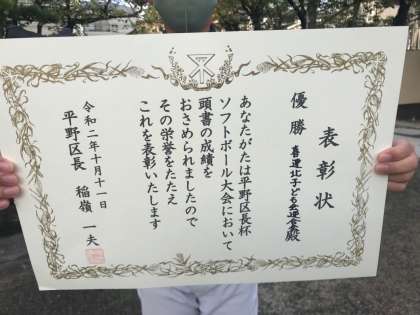 表彰状
優勝
喜連北子ども会連合殿
あなたがたは平野区長杯
ソフトボール大会において
頭書の成績を
おさめられましたので
その栄誉をたたえ
これを表彰いたします
令和二年十月十一日
平野区長 稲嶺一夫